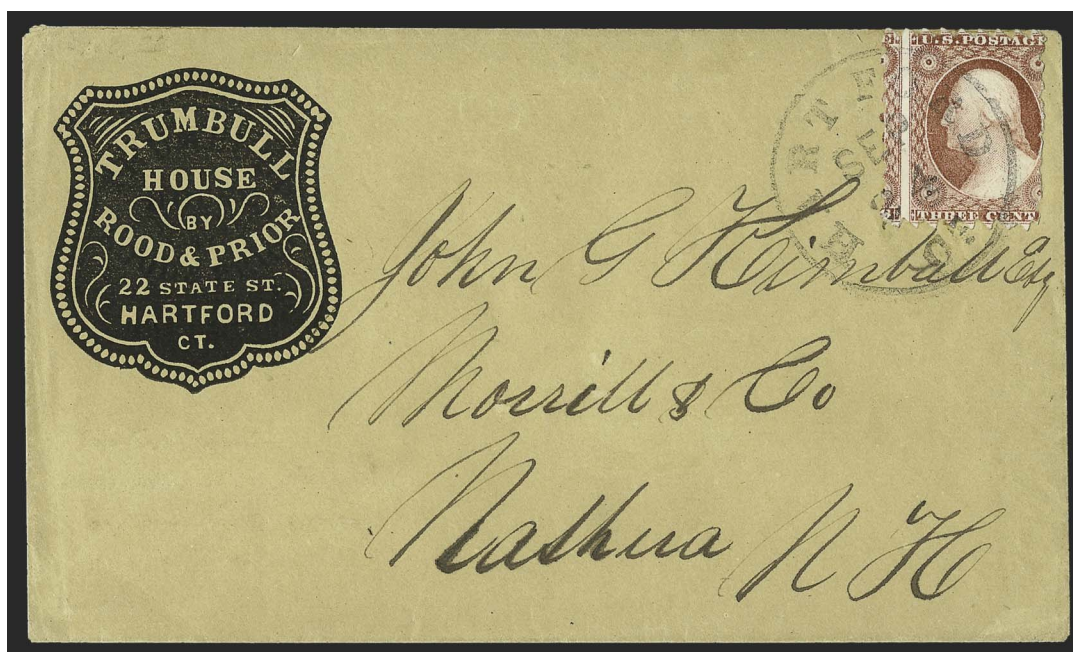 TRUMBULL
HOUSE
BY
ROOD & PRIOR
22 STATE ST.
HARTFORD
CT.
U.S. POSTAGE
THREE CENT
HARTFORD
SEP
John G Kimball Esq
Morrill & Co
Nashua N H